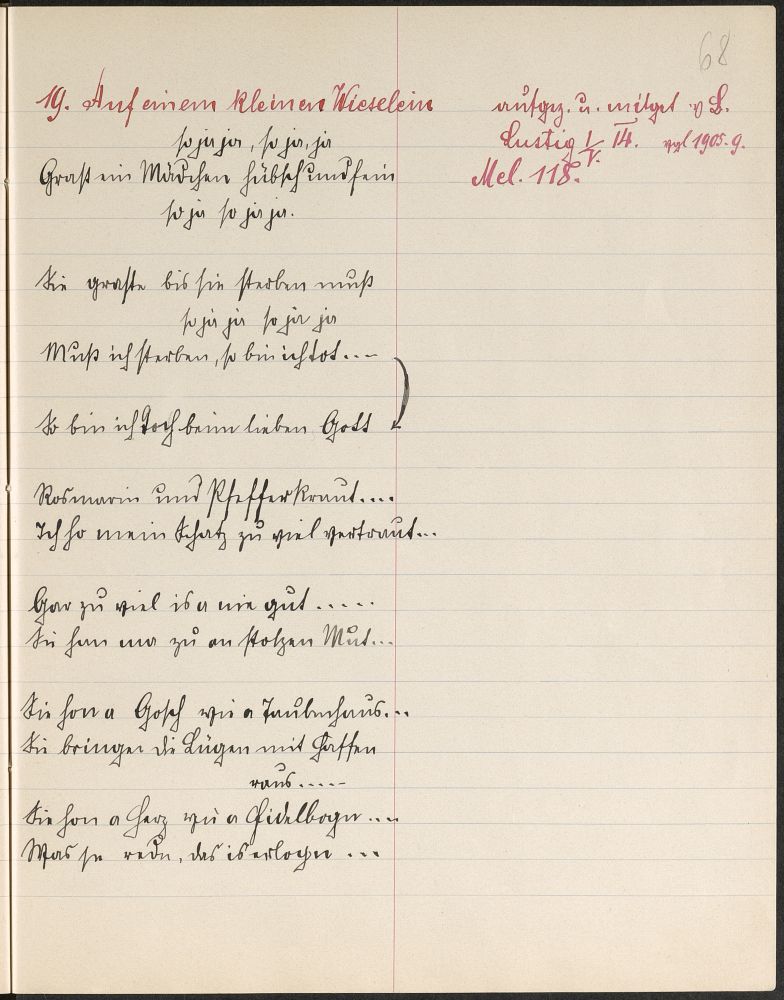 68
19. Auf einem kleinen Wieselein
so ja ja, so ja, ja
Grast ein Mädchen hübsch und fein
so ja so ja ja.
aufgez. u. mitget v L.
Lustig I/V. 14. vgl 1905. 9.
Mel. 118.
Sie graste bis sie sterben muß
so ja ja so ja ja
Muß ich sterben, so bin ich tot...
So bin ich doch beim lieben Gott
Rosmarin und Pfefferkraut....
Ich ho mein Schatz zu viel vertraut...
Gar zu viel is a nie gut.....
Sie han ma zu an stolzen Mut...
Sie hon a Gosch wie a Taubenhaus...
Sie bringen die Lügen mit Haffen
raus.....
Sie hon a Herz wie a Fidelbogn...
Was se redn, das is erlogn ...